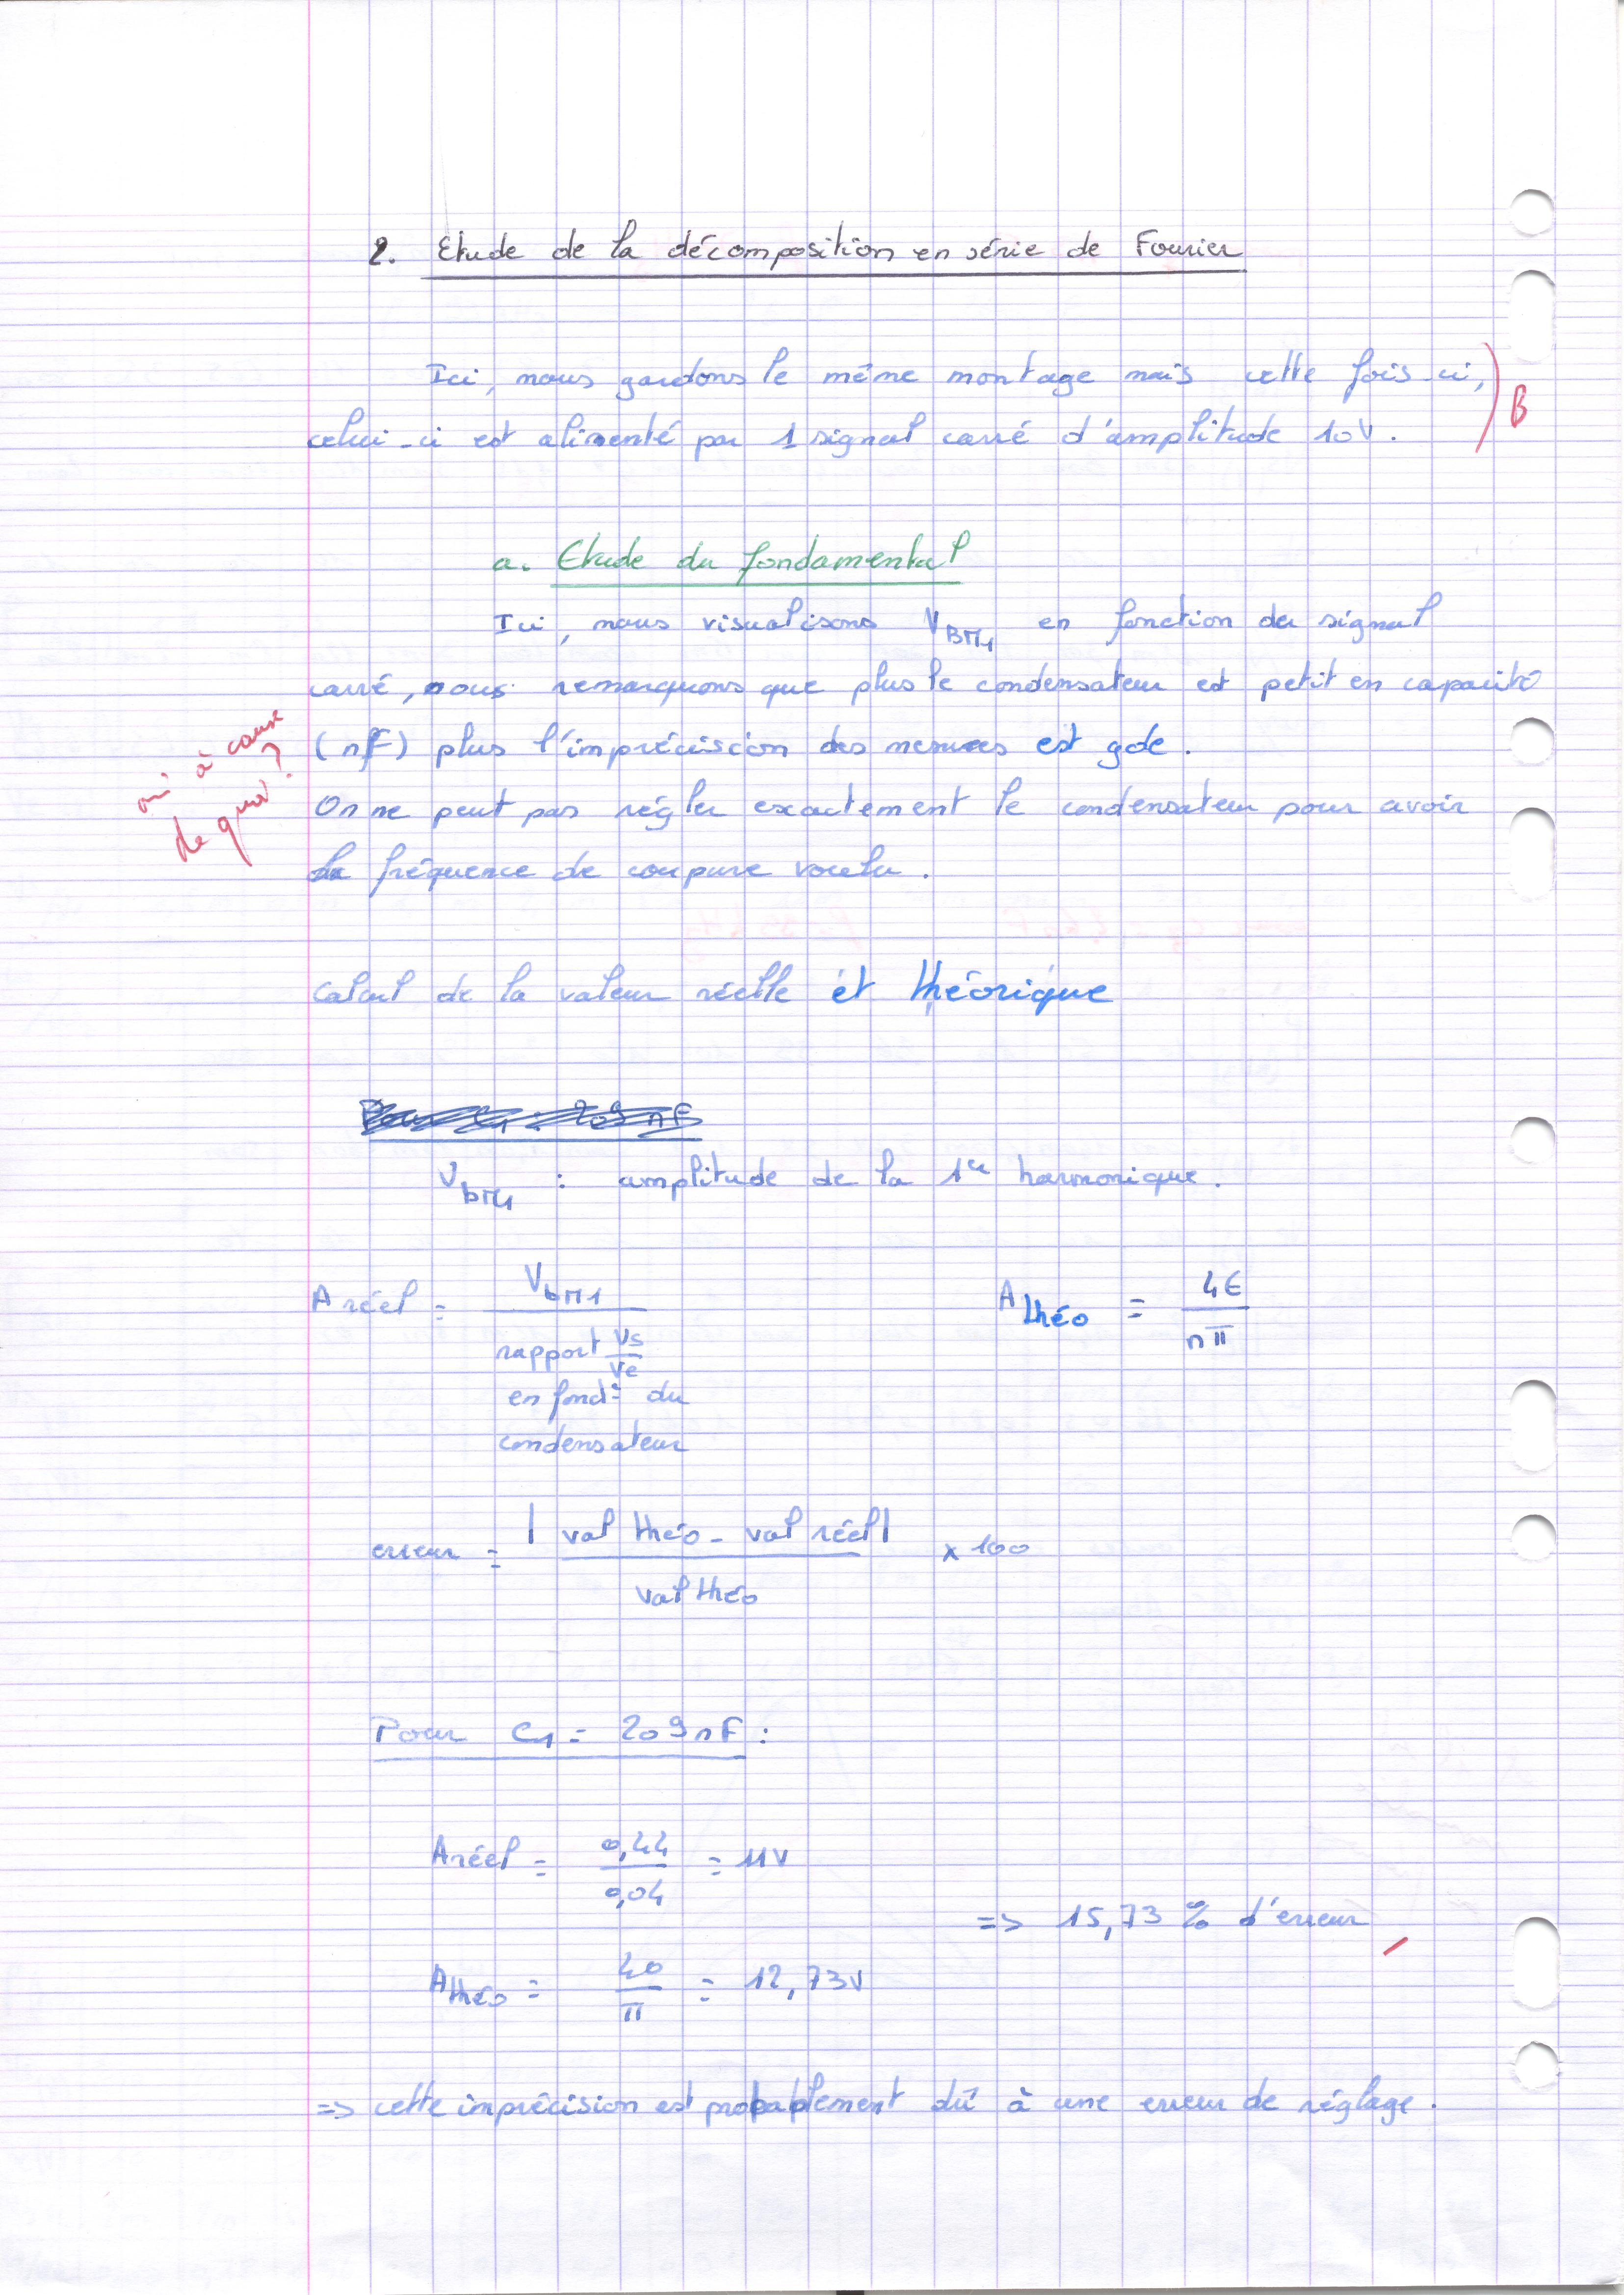 2. Etude de la décomposition en série de Fourier
Ici, nous gardons le même montage mais cette fois-ci,
celui-ci est alimenté par 1 signal carré d'amplitude 10V.
B
a. Etude du fondamental
Ici, nous visualisons VBM1 en fonction du signal
carré, nous remarquons que plus le condensateur est petit en capacité
(nF) plus l'impréciscion des mesures est gde.
oui à cause
de quoi ?
On ne peut pas régler exactement le condensateur pour avoir
la fréquence de coupure voulu.
Calcul de la valeur réelle et théorique
VbM1 : amplitude de la 1er harmonique.
A réel = VbM1 / rapport Vs/Ve
en fonct° du
condensateur
A théo = 4E / nπ
erreur = | val théo - val réel | / val théo x 100
Pour C1 = 209nF :
Aréel = 0,44 / 0,04 = 11V
=> 15,73 % d'erreur
Athéo = 40 / π = 12,73V
=> cette imprécision est probablement dû à une erreur de réglage.